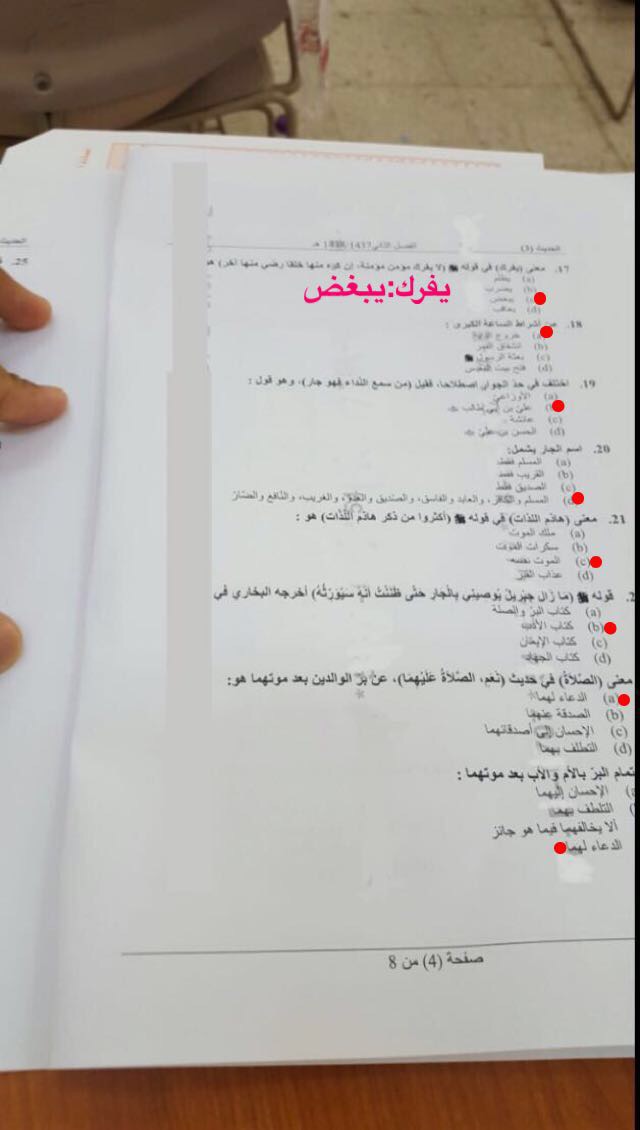 الحديث (3) الفصل الثاني 1437/
17. معنى (يفرك) في قوله ﷺ (لا يفرك مؤمن مؤمنة، إن كره منها خلقا رضي منها آخر) هو
(a) يظلم
(b) يضرب
(c) يبغض
(d) يعاقب
يفرك:يبغض
18. من أشراط الساعة الكبرى :
(a) خروج
(b) انشقاق القمر
(c) بعثة الرسول ﷺ
(d) فتح بيت المقدس
19. اختلف في حد الجوار اصطلاحا، فقيل (من سمع النداء فهو جار)، وهو قول :
(a) الأوزاعي
(b) علي بن أبي طالب
(c) عائشة
(d) الحسن بن علي
20. اسم الجار يشمل:
(a) المسلم فقط
(b) القريب فقط
(c) الصديق فقط
(d) المسلم والكافر، والعابد والفاسق، والصديق والعدو، والغريب، والنافع والضار
21. معنى (هاذم اللذات) في قوله ﷺ (أكثروا من ذكر هاذم اللذات) هو :
(a) ملك الموت
(b) سكرات الموت
(c) الموت نفسه
(d) عذاب القبر
قوله ﷺ (ما زال جبريل يوصيني بالجار حتى ظننت أنه سيورثه) أخرجه البخاري في
(a) كتاب البر والصلة
(b) كتاب الأدب
(c) كتاب الإيمان
(d) كتاب الجهاد
معنى (الصلاة) في حديث (نعم، الصلاة عليهما)، عن بر الوالدين بعد موتهما هو:
(a) الدعاء لهما
(b) الصدقة عنهما
(c) الإحسان إلى أصدقائهما
(d) التلطف بهما
تمام البر بالأم والأب بعد موتهما :
الإحسان إليهما
التلطف بهما
ألا يخالفهما فيما هو جائز
الدعاء لهما
صفحة (4) من 8
الحديث
25.